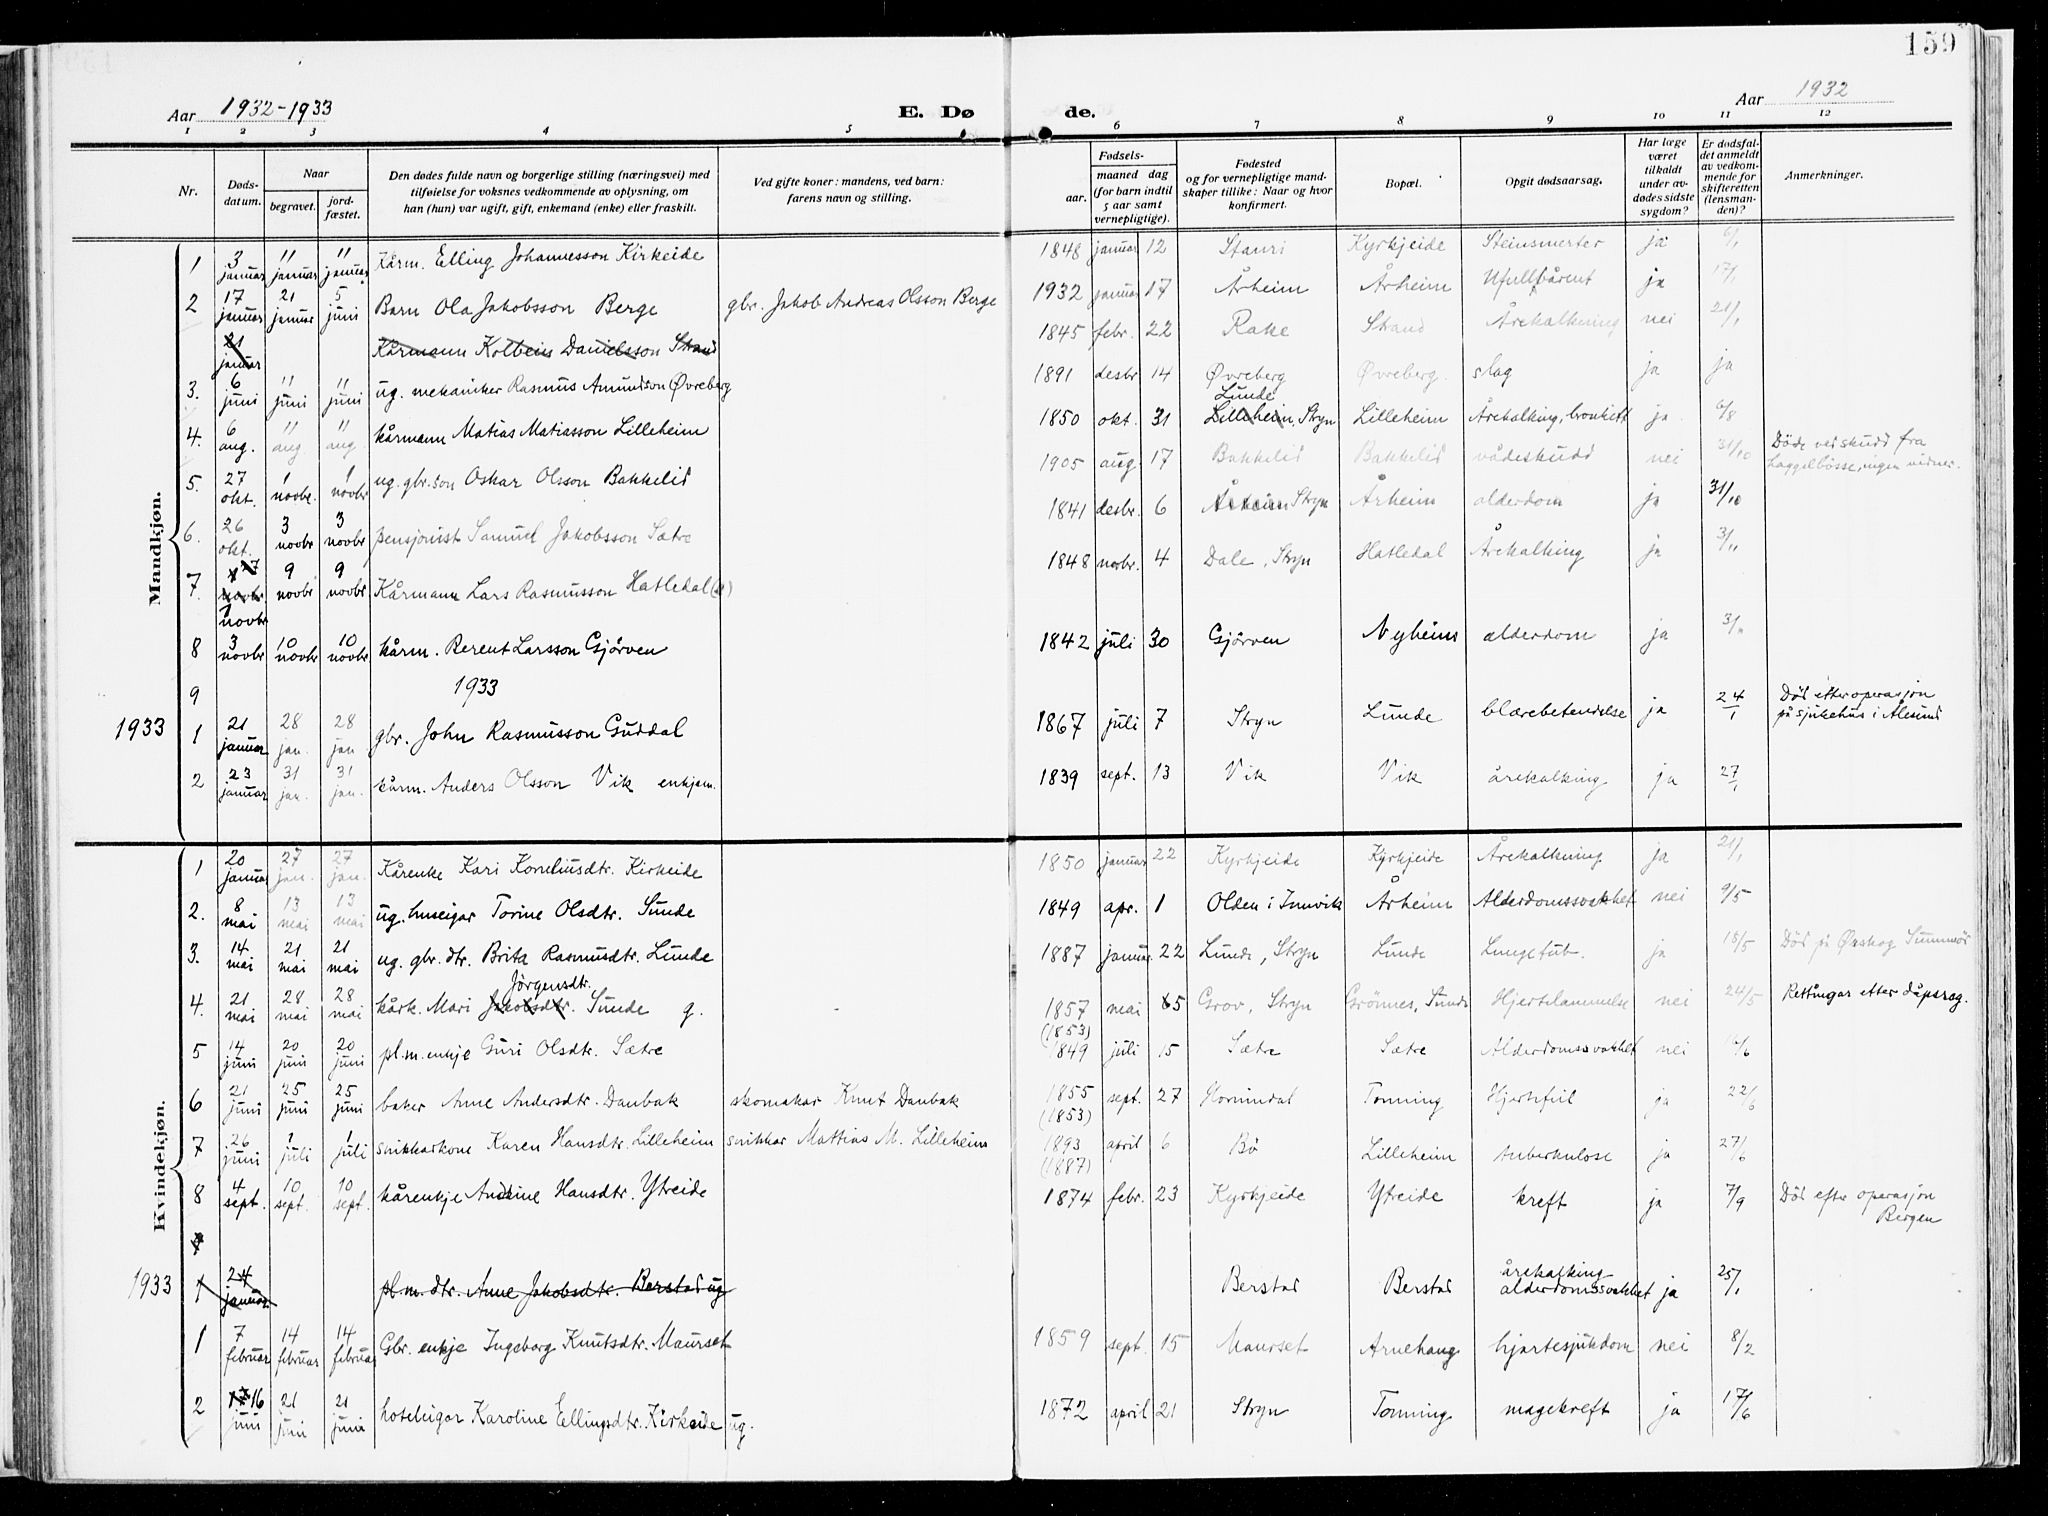 159
Aar 1932-1933
E. Dø
de.
Aar 1932
1 2 3 4 5 6 7 8 9 10 11 12
Nr.
Døds-
datum.
Naar
begravet.
jord-
fæstet.
Den dødes fulde navn og borgerlige stilling (næringsvei) med
tilføielse for voksnes vedkommende av oplysning, om
han (hun) var ugift, gift, enkemand (enke) eller fraskilt.
Ved gifte koner: mandens, ved barn:
farens navn og stilling.
Fødsels-
aar.
maaned dag
(for barn indtil
5 aar samt
vernepligtige).
Fødested
og for vernepligtige mand-
skaper tillike: Naar og hvor
konfirmert.
Bopæl.
Opgit dødsaarsag.
Har læge
været
tilkaldt
under av-
dødes sidste
sygdom?
Er dødsfal-
det anmeldt
av vedkom-
mende for
skifteretten
(lensman-
den)?
Anmerkninger.
Mandkjøn.
1 3 januar 11 januar 11 januar Kårm. Elling Johannesson Kirkeide 1848 januar 12 Stauri Kyrkjeide Steinsmerter ja 6/1
2 17 januar 21 januar 5 juni Barn Ola Jakobsson Berge gbr. Jakob Andreas Olsson Berge 1932 januar 17 Årheim Årheim Ufullbårent ja 17/1
21 januar Kårmann Kolbein Danielsson Strand 1845 febr. 22 Rake Strand Årekalkning nei 21/1
3. 6 juni 11 juni 11 juni ug. mekaniker Rasmus Amundson Øvreberg 1891 desbr 14 Øvreberg Øvreberg. slag ja ja
4. 6 aug. 11 aug. 11 aug kårmann Matias Matiasson Lilleheim 1850 okt. 31 Lunde Lilleheim, Stryn Lilleheim Årekalking, bronkitt ja 6/8
5. 27 okt. 1 novbr. 1 novbr ug. gbr. son Oskar Olsson Bakkelid 1905 aug 17 Bakkelid Bakkelid vådeskudd nei 31/10 Døde ved skudd fra
haggelbösse, ingen vidner.
6. 26 okt. 3 novbr 3 novbr pensjonist Samuel Jakobsson Sætre 1841 desbr. 6 Årheim Stryn Årheim alderdom ja 31/10
7. novbr 7 novbr 9 novbr 9 novbr Kårmann Lars Rasmusson Hatledal 1848 novbr. 4 Dale, Stryn Hatledal Årekalking ja 3/11
8 3 novbr 10 novbr 10 novbr kårm. Berent Larsson Gjörven 1842 juli 30 Gjörven Nyheim alderdom ja 3/11
9 1933
1933 1 21 januar 28 jan. 28 jan gbr. John Rasmusson Guddal 1867 juli 7 Stryn Lunde blærebetendelse ja 24/1 Död efter operasjon
på sjukehus i Ålesund
2 23 januar 31 jan. 31 jan. kårm. Anders Olsson Vik enkjem. 1839 sept. 13 Vik Vik årekalking ja 27/1
Kvindekjøn.
1 20 januar 27 jan. 27 jan. Kårenke Kari Korneliusdtr. Kirkeide 1850 januar 22 Kyrkjeide Kyrkjeide Årekalkning ja 21/1
2. 8 mai 13 mai 13 mai ug. huseigar Torine Olsdtr. Sunde 1849 apr. 1 Olden i Innvik Årheim Alderdomssvakhet nei 9/5
3. 14 mai 21 mai 21 mai ug. gbr. dtr. Brita Rasmusdtr. Lunde 1887 januar 22 Lunde, Stryn Lunde Lungetub. ja 18/5 Död på Ørskog Sunnmör
4. 21 mai 28 mai 28 mai kårk. Mari Jakobsdtr. Jörgensdtr. Sunde g. 1857 (1853) mai 5 Grov, Stryn Grönnes, Sunde Hjertelammelse nei 24/5 Rettingar etter dåpsreg.
5 14 juni 20 juni 20 juni pl.m. enkje Guri Olsdtr. Sætre 1849 juli 15 Sætre Sætre Alderdomssvakhet nei 14/6
6 21 juni 25 juni 25 juni baker Anne Andersdtr. Danbak skomakar Knut Danbak 1855 (1853) sept. 27 Hornindal Tonning Hjertefeil ja 22/6
7 26 juni 1 juli 1 juli snikkarkone Karen Hansdtr. Lilleheim snikkar Mattias M. Lilleheim 1893 (1887) april 6 Bö Lilleheim tuberkulose ja 27/6
8 4 sept. 10 sept. 10 sept. kårenkje Andrine Hansdtr. Ytreide 1874 febr. 23 Kyrkjeide Ytreide kreft ja 7/9 Död efter operasjon
Bergen
1933 1 24 januar pl.m. dtr. Anne Jakobsdtr. Berstad ug Berstad Berstad årekalking alderdomssvakhet ja 25/1
1 7 februar 14 februar 14 februar Gbr. enkje Ingeborg Knutsdtr. Maurset 1859 sept. 15 Maurset Arnehaug hjartesjukdom nei 8/2
2 16 juni 21 juni 21 juni hoteleigar Karoline Ellingsdtr. Kirkeide ug. 1872 april 21 Stryn Tonning magekreft ja 17/6